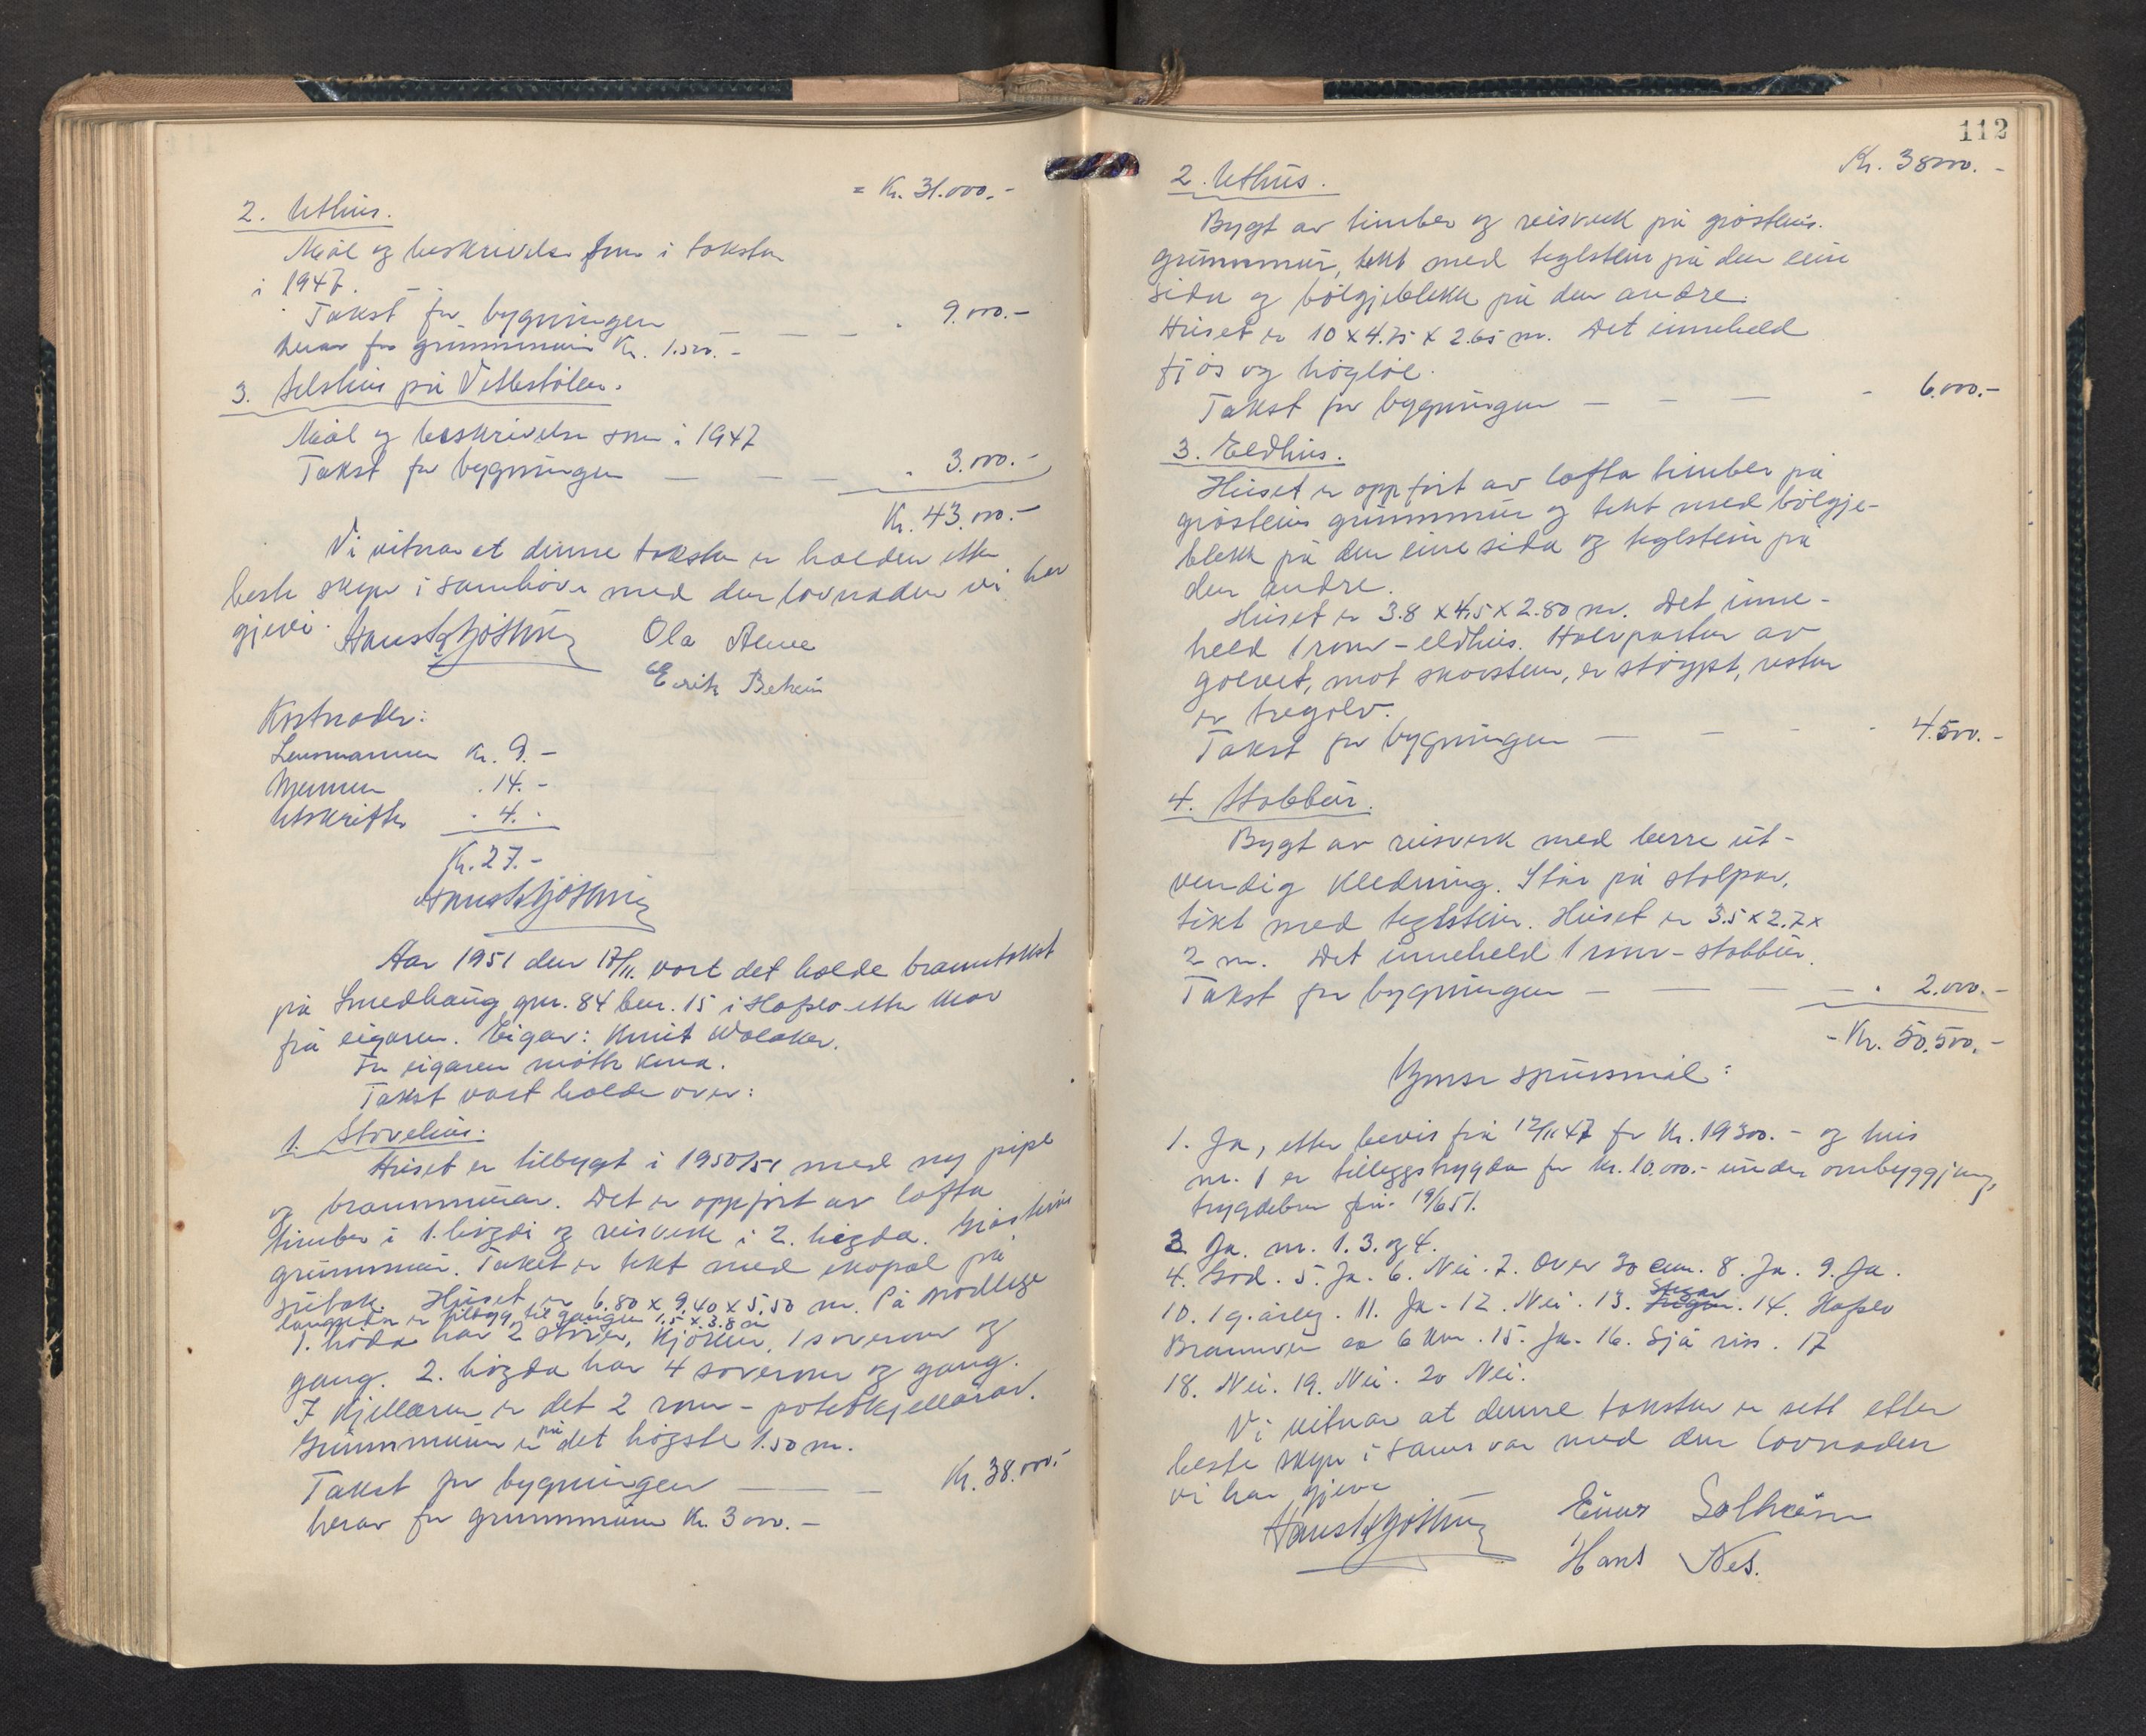 = Kr. 31.000.-
2. Uthus.
Mål og beskrivelse som i taksten
i 1947.
Takst for bygningen — — — . 9.000.-
herav for grunnmuren Kr. 1.500.-
3. Selshus på Vetlestølen.
Mål og beskrivelse som i 1947
Takst for bygningen — — — . 3.000.-
Kr. 43.000.-
Vi vitnar at denne taksten er halden etter
beste skyn i samhøve med den lovnaden vi har
gjeve.
Ola
Erik
Kostnader:
Lensmannen Kr. 9.-
Mennene . 14.-
Utskrifter . 4.-
Kr. 27.-
Aar 1951 den 17/11. vart det halde branntakst
på Smedhaug gnr. 84 bnr. 15 i Hafslo etter krav
frå eigaren. Eigar: Knut Walaker.
For eigaren møtte kona.
Takst vart halde over:
1. Stovehus.
Huset er tilbygt i 1950/51 med ny pipe
og brannmurar. Det er oppført av lafta
timber i 1. høgdi og reisverk i 2. høgda. Gråsteins
grunnmur. Taket er tekt med skopal på
sutak. Huset er 6.80 x 9.40 x 5.50 m. På
langsida er tilbygg til gangen 1.5 x 3.8 m
1. høda har 2 stover, kjøken, 1 soverom og
gang. 2. høgda har 4 soverom og gang.
I kjellaren er det 2 rom - potetkjellarar.
Grunnmuren er på det høgste 1.50 m.
Takst for bygningen — — — Kr. 38.000.-
herav for grunnmuren Kr. 3000.-
112
Kr. 38000.-
2. Uthus.
Bygt av timber og reisverk på gråsteins.
grunnmur, tekt med teglstein på den eine
sida og bølgjeblekk på den andre.
Huset er 10 x 4.75 x 2.65 m. Det inneheld
fjøs og høyløe.
Takst for bygningen — — — - 6.000.-
3. Eldhus.
Huset er oppført av lafta timber på
gråsteins grunnmur og tekt med bølgje-
blekk på den eine sida og teglstein på
den andre.
Huset er 3.8 x 4,5 x 2.80 m. Det inne-
held 1 rom - eldhus. Halvparten av
golvet, mot skorstein, er støypt, resten
er tregolv.
Takst for bygningen — — - - 4.500.-
4. Stabbur.
Bygt av reisverk med berre ut-
vendig kledning. Står på stolpar,
tekt med teglstein. Huset er 3.5 x 2.7 x
2 m. Det inneheld 1 rom - stabbur.
Takst for bygningen — — — — . 2.000.-
- Kr. 50.500.-
Ymse spursmål:
1. Ja, etter bevis frå 12/11 47 for Kr. 19300.- og hus
nr. 1 er tilleggstrygda for kr. 10.000.- under ombyggjing,
trygdebrev frå 19/6 51.
3. Ja. nr. 1. 3. og 4.
4. God. 5. Ja. 6. Nei. 7. Over 30 cm. 8. Ja. 9. Ja.
10. 1 g. årleg. 11. Ja. 12. Nei. 13. Stegar. 14. Hafslo
Brannven ca 6 km. 15. Ja. 16. Sjå riss. 17
18. Nei. 19. Nei. 20 Nei.
Vi vitnar at denne taksten er sett etter
beste skyn i samsvar med den lovnaden
vi har gjeve
Einar
Hans Nes.